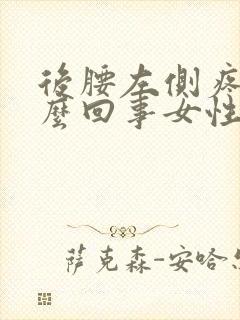 後腰左側疼
麼回事女性
萨克森-安哈